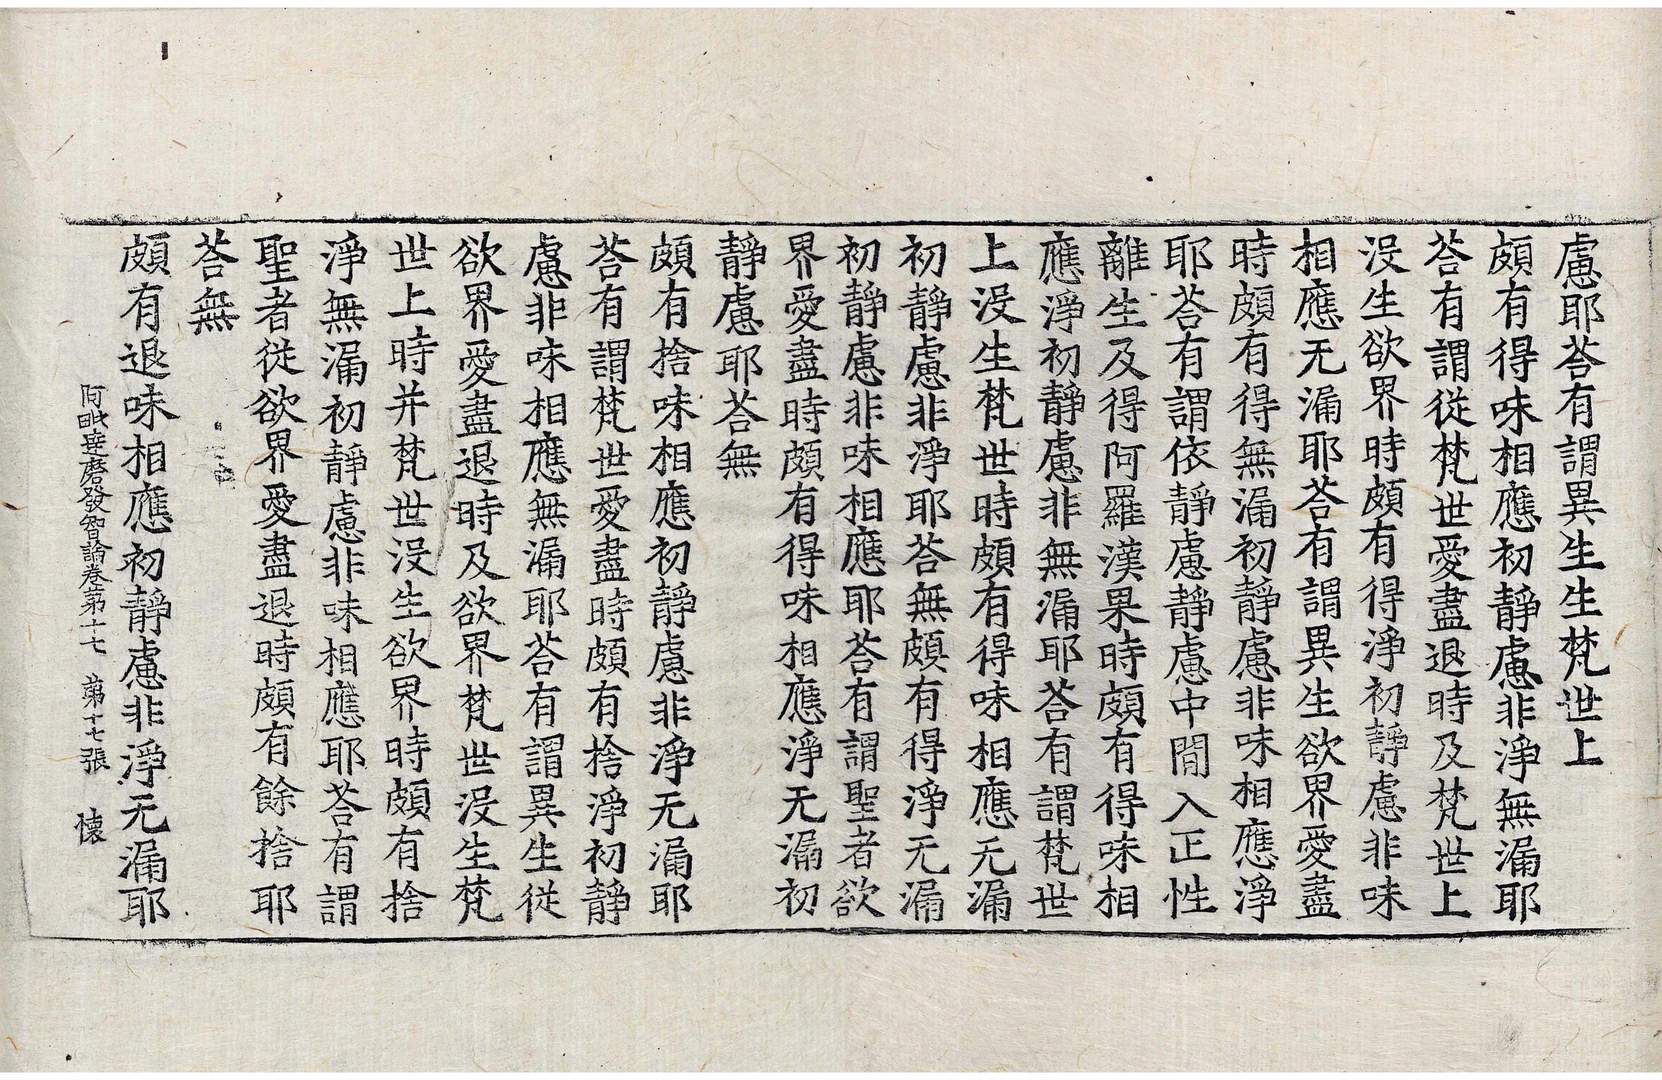 慮耶荅有謂異生生梵世上
頗有得味相應初靜慮非淨無漏耶
荅有謂從梵世愛盡退時及梵世上
没生欲界時頗有得淨初靜慮非味
相應无漏耶荅有謂異生欲界愛盡
時頗有得無漏初靜慮非味相應淨
耶荅有謂依靜慮靜慮中間入正性
離生及得阿羅漢果時頗有得味相
應淨初靜慮非無漏耶荅有謂梵世
上没生梵世時頗有得味相應无漏
初靜慮非淨耶荅無頗有得淨无漏
初靜慮非味相應耶荅有謂聖者欲
界愛盡時頗有得味相應淨无漏初
靜慮耶荅無
頗有捨味相應初靜慮非淨无漏耶
荅有謂梵世愛盡時頗有捨淨初靜
慮非味相應無漏耶荅有謂異生從
欲界愛盡退時及欲界梵世没生梵
世上時并梵世没生欲界時頗有捨
淨無漏初靜慮非味相應耶荅有謂
聖者從欲界愛盡退時頗有餘捨耶
荅無
頗有退味相應初靜慮非淨无漏耶
阿毗達磨發智論卷第十七　第十七張　懐